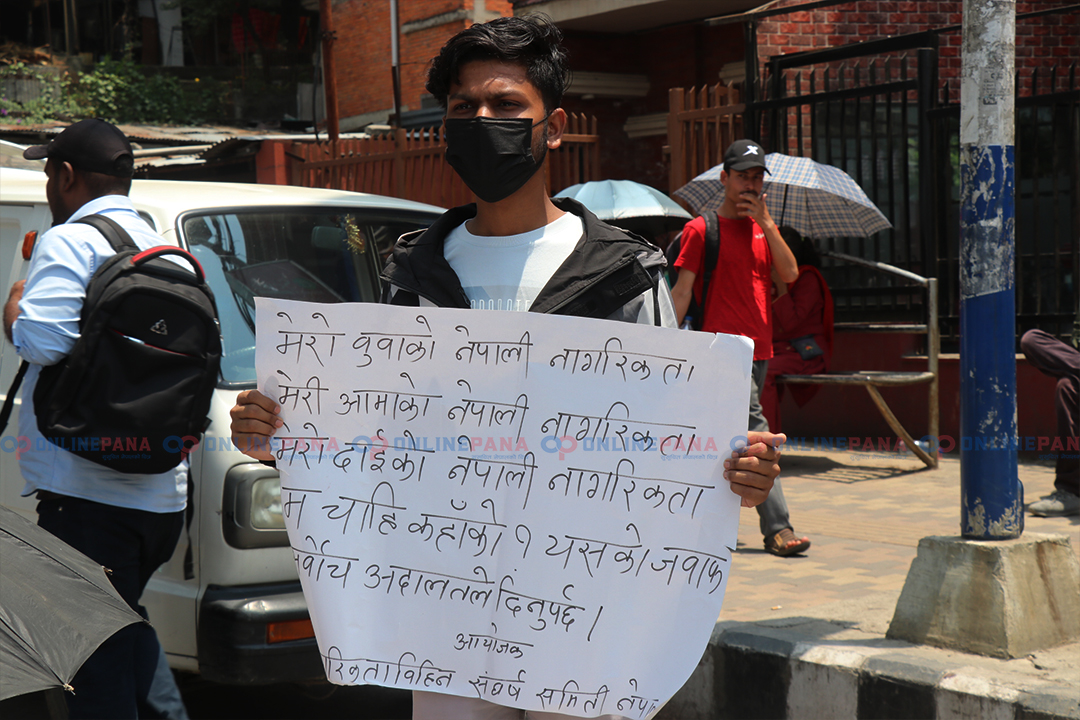 मेरो वुवाको नेपाली नागरिकता
मेरी आमाको नेपाली नागरिकता
मेरो दाईको नेपाली नागरिकता
म चाहि कहाँको? यसको जवाफ
सर्वोच अदालतले दिनुपर्छ।
आयोजक
संघर्ष समिती
ONLINEPANA ONLINEPANA ONLINEPANA ONLINEPANA